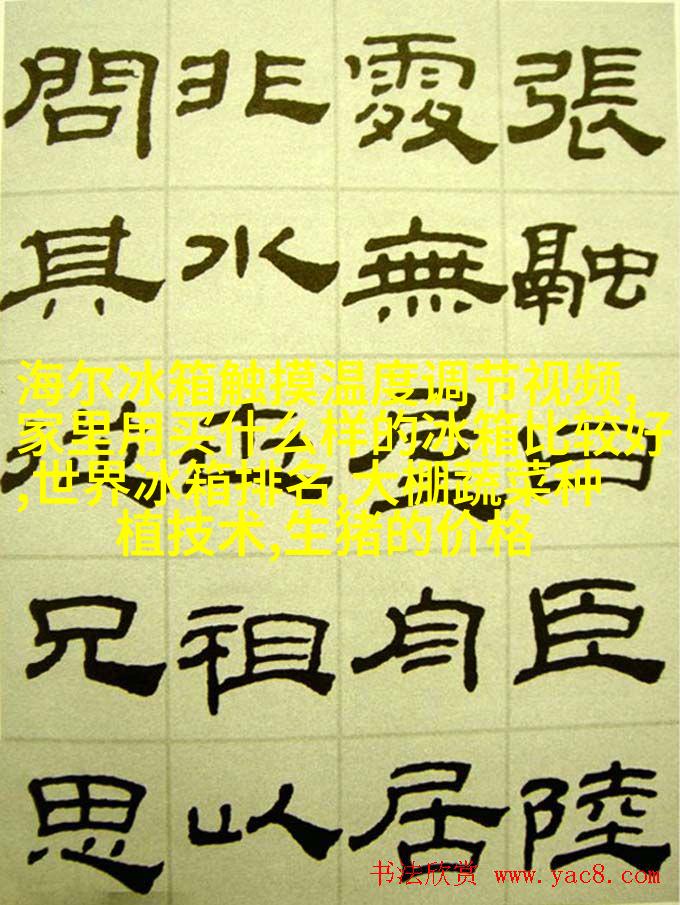 張融臣陸
處無屋舟居
非水世祖以
問其從兄思
海尔冰箱触摸温度调节视频,
家里用买什么样的冰箱比较好
,世界冰箱排名,大棚蔬菜种
植技术,生猪的价格
书法欣赏 www.yac8.com